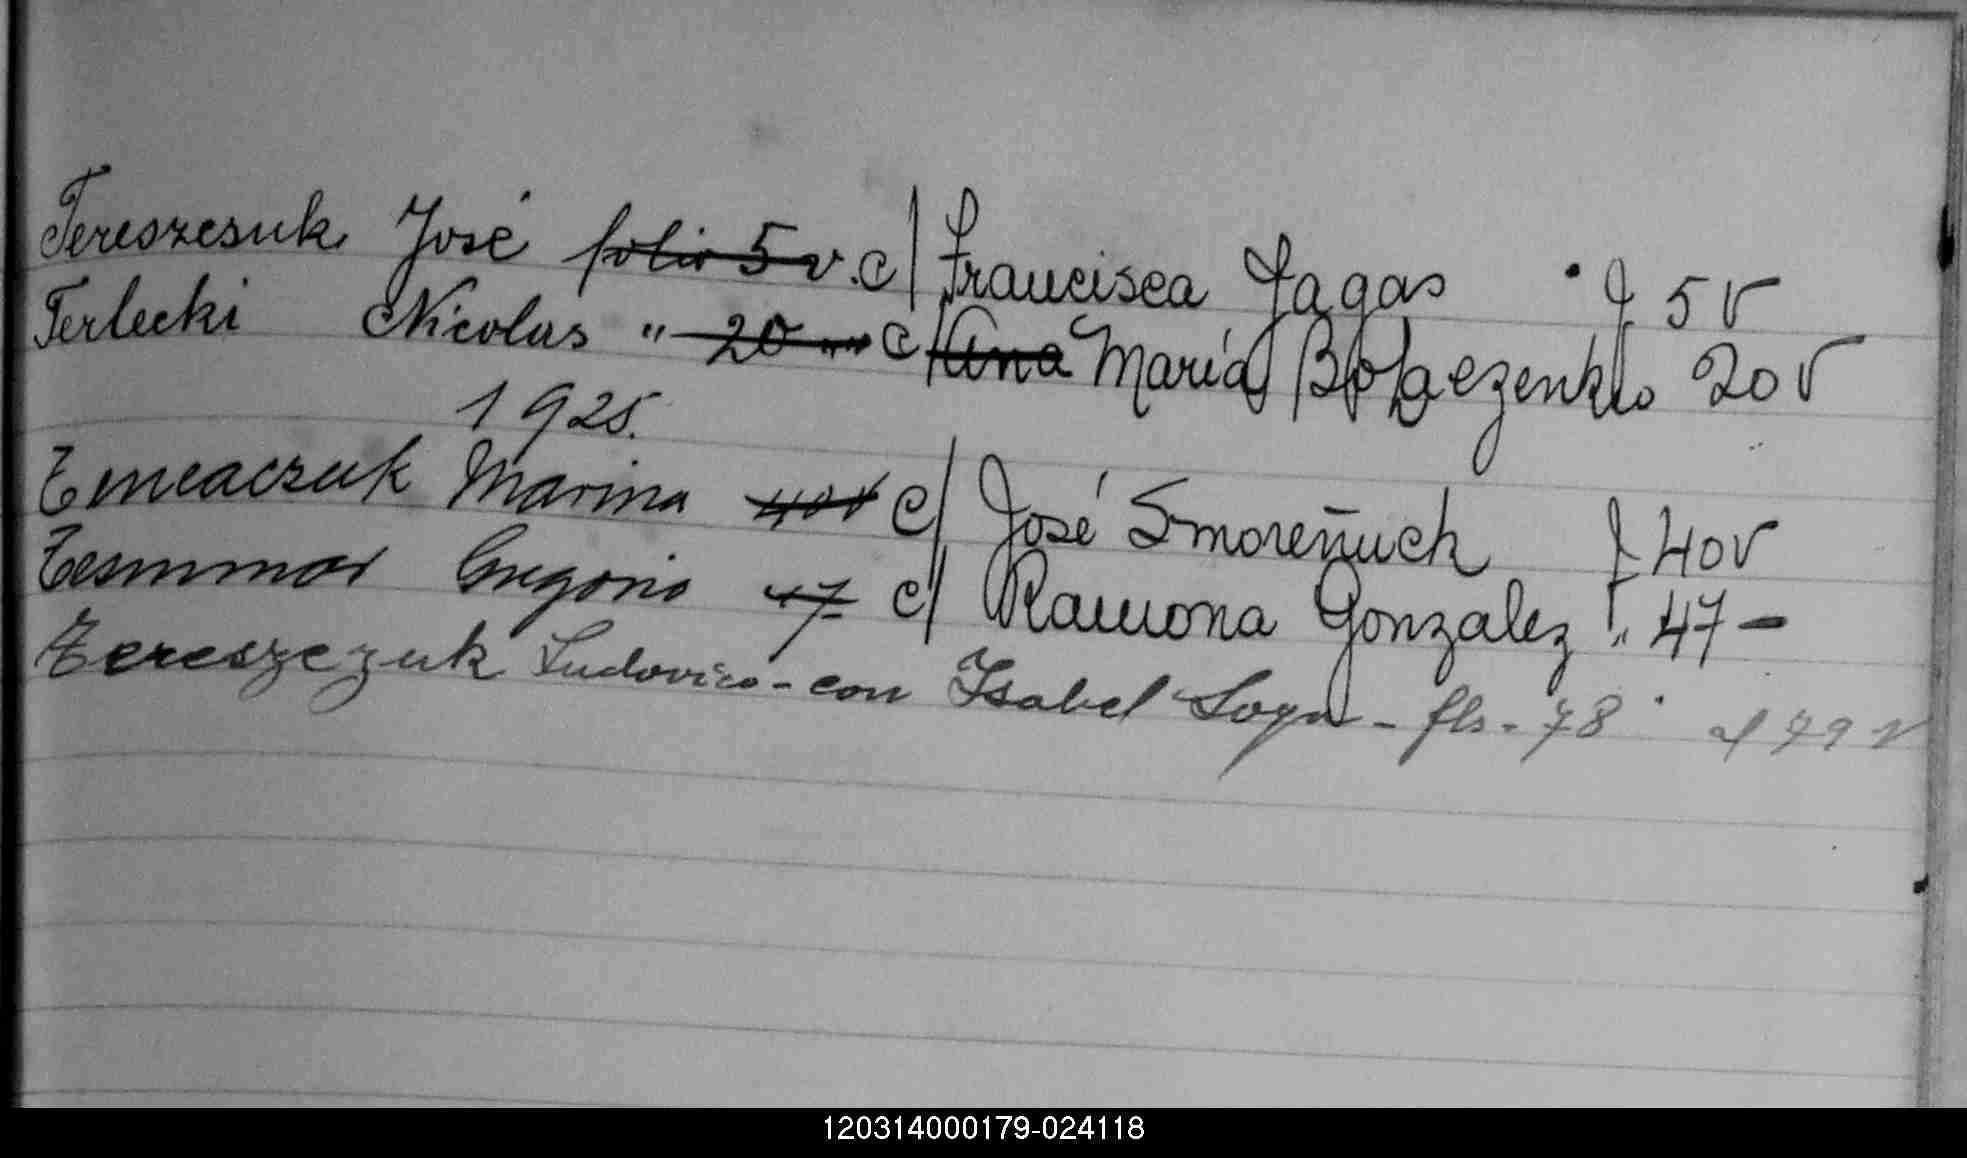 Tereszesuk José folio 5 v. c/ Francisca Jagas f 5 v
Terlecki Nicolas " 20 " c/ Ana Maria 20 v
1925.
Tmeaczuk Marina 40v c/ José Smoreñuch f 40v
Tesmmar Gregorio 47 c/ Ramona Gonzalez " 47 -
Tereszezuk Ludovico - con Isabel - fls - 78 af 79 v
120314000179-024118